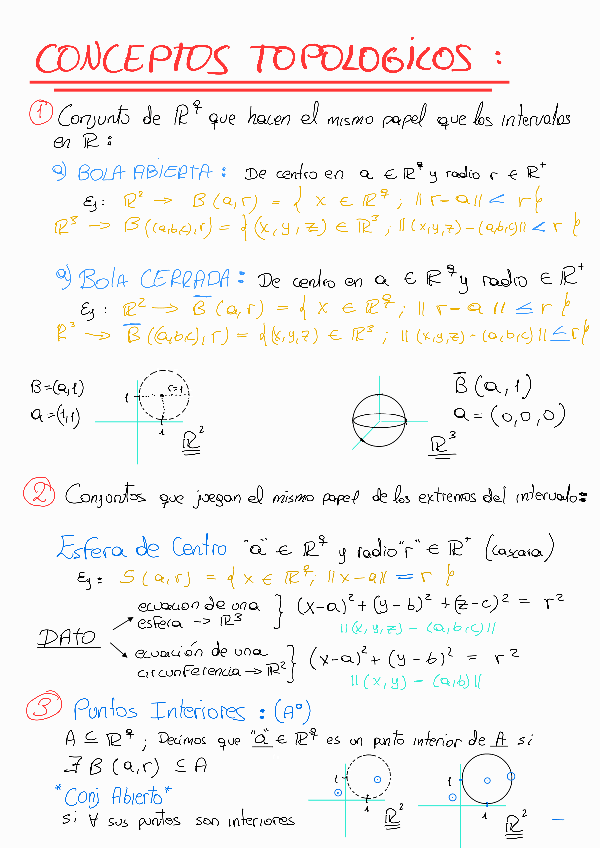 CONCEPTOS TOPOLOGICOS :
① Conjunto de ℝ^q que hacen el mismo papel que los intervalos
en ℝ :
a) BOLA ABIERTA : De centro en a ∈ ℝ^q y radio r ∈ ℝ⁺
Ej: ℝ² → B (a,r) = { x ∈ ℝ^q ; || r - a || < r }
ℝ³ → B((a,b,c),r) = {(x,y,z) ∈ ℝ³ ; ||(x,y,z) - (a,b,c)|| < r }
a) BOLA CERRADA : De centro en a ∈ ℝ^q y radio ∈ ℝ⁺
Ej: ℝ² → B̅ (a,r) = { x ∈ ℝ^q ; || r - a || ≤ r }
ℝ³ → B̅ ((a,b,c),r) = {(x,y,z) ∈ ℝ³ ; ||(x,y,z) - (a,b,c)|| ≤ r }
B=(a,1)
a=(1,1)
r=1
1
1
ℝ²
B̅ (a,1)
a = (0,0,0)
ℝ³
② Conjuntos que juegan el mismo papel de los extremos del intervalo:
Esfera de Centro "a" ∈ ℝ^q y radio "r" ∈ ℝ⁺ (cascara)
Ej: S(a,r) = { x ∈ ℝ^q, ||x-a|| = r }
DATO
ecuacion de una
esfera → ℝ³ } (x-a)² + (y-b)² + (z-c)² = r²
||(x,y,z) - (a,b,c)||
ecuación de una
circunferencia → ℝ² } (x-a)² + (y-b)² = r²
||(x,y) - (a,b)||
③ Puntos Interiores : (A°)
A ⊆ ℝ^q ; Decimos que "a" ∈ ℝ^q es un punto interior de A si
∃ B (a,r) ⊆ A
*Conj Abierto*
si ∀ sus puntos son interiores
1
1
ℝ²
1
1
ℝ²